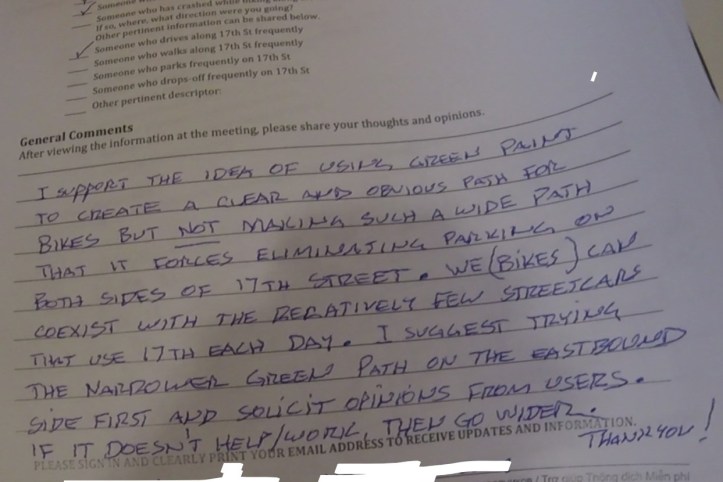 ✓ Someone
✓ Someone who has crashed while
If so, where, what direction were you going?
Other pertinent information can be shared below.
✓ Someone who drives along 17th St frequently
Someone who walks along 17th St frequently
Someone who parks frequently on 17th St
Someone who drops-off frequently on 17th St
Other pertinent descriptor:
General Comments
After viewing the information at the meeting, please share your thoughts and opinions.
I SUPPORT THE IDEA OF USING GREEN PAINT
TO CREATE A CLEAR AND OBVIOUS PATH FOR
BIKES BUT NOT MAKING SUCH A WIDE PATH
THAT IT FORCES ELIMINATING PARKING ON
BOTH SIDES OF 17TH STREET. WE (BIKES) CAN
COEXIST WITH THE RELATIVELY FEW STREETCARS
THAT USE 17TH EACH DAY. I SUGGEST TRYING
THE NARROWER GREEN PATH ON THE EASTBOUND
SIDE FIRST AND SOLICIT OPINIONS FROM USERS.
IF IT DOESN'T HELP/WORK, THEN GO WIDER.
THANK YOU!
PLEASE SIGN IN AND CLEARLY PRINT YOUR EMAIL ADDRESS TO RECEIVE UPDATES AND INFORMATION.
/ Trợ giúp Thông dịch Miễn phí